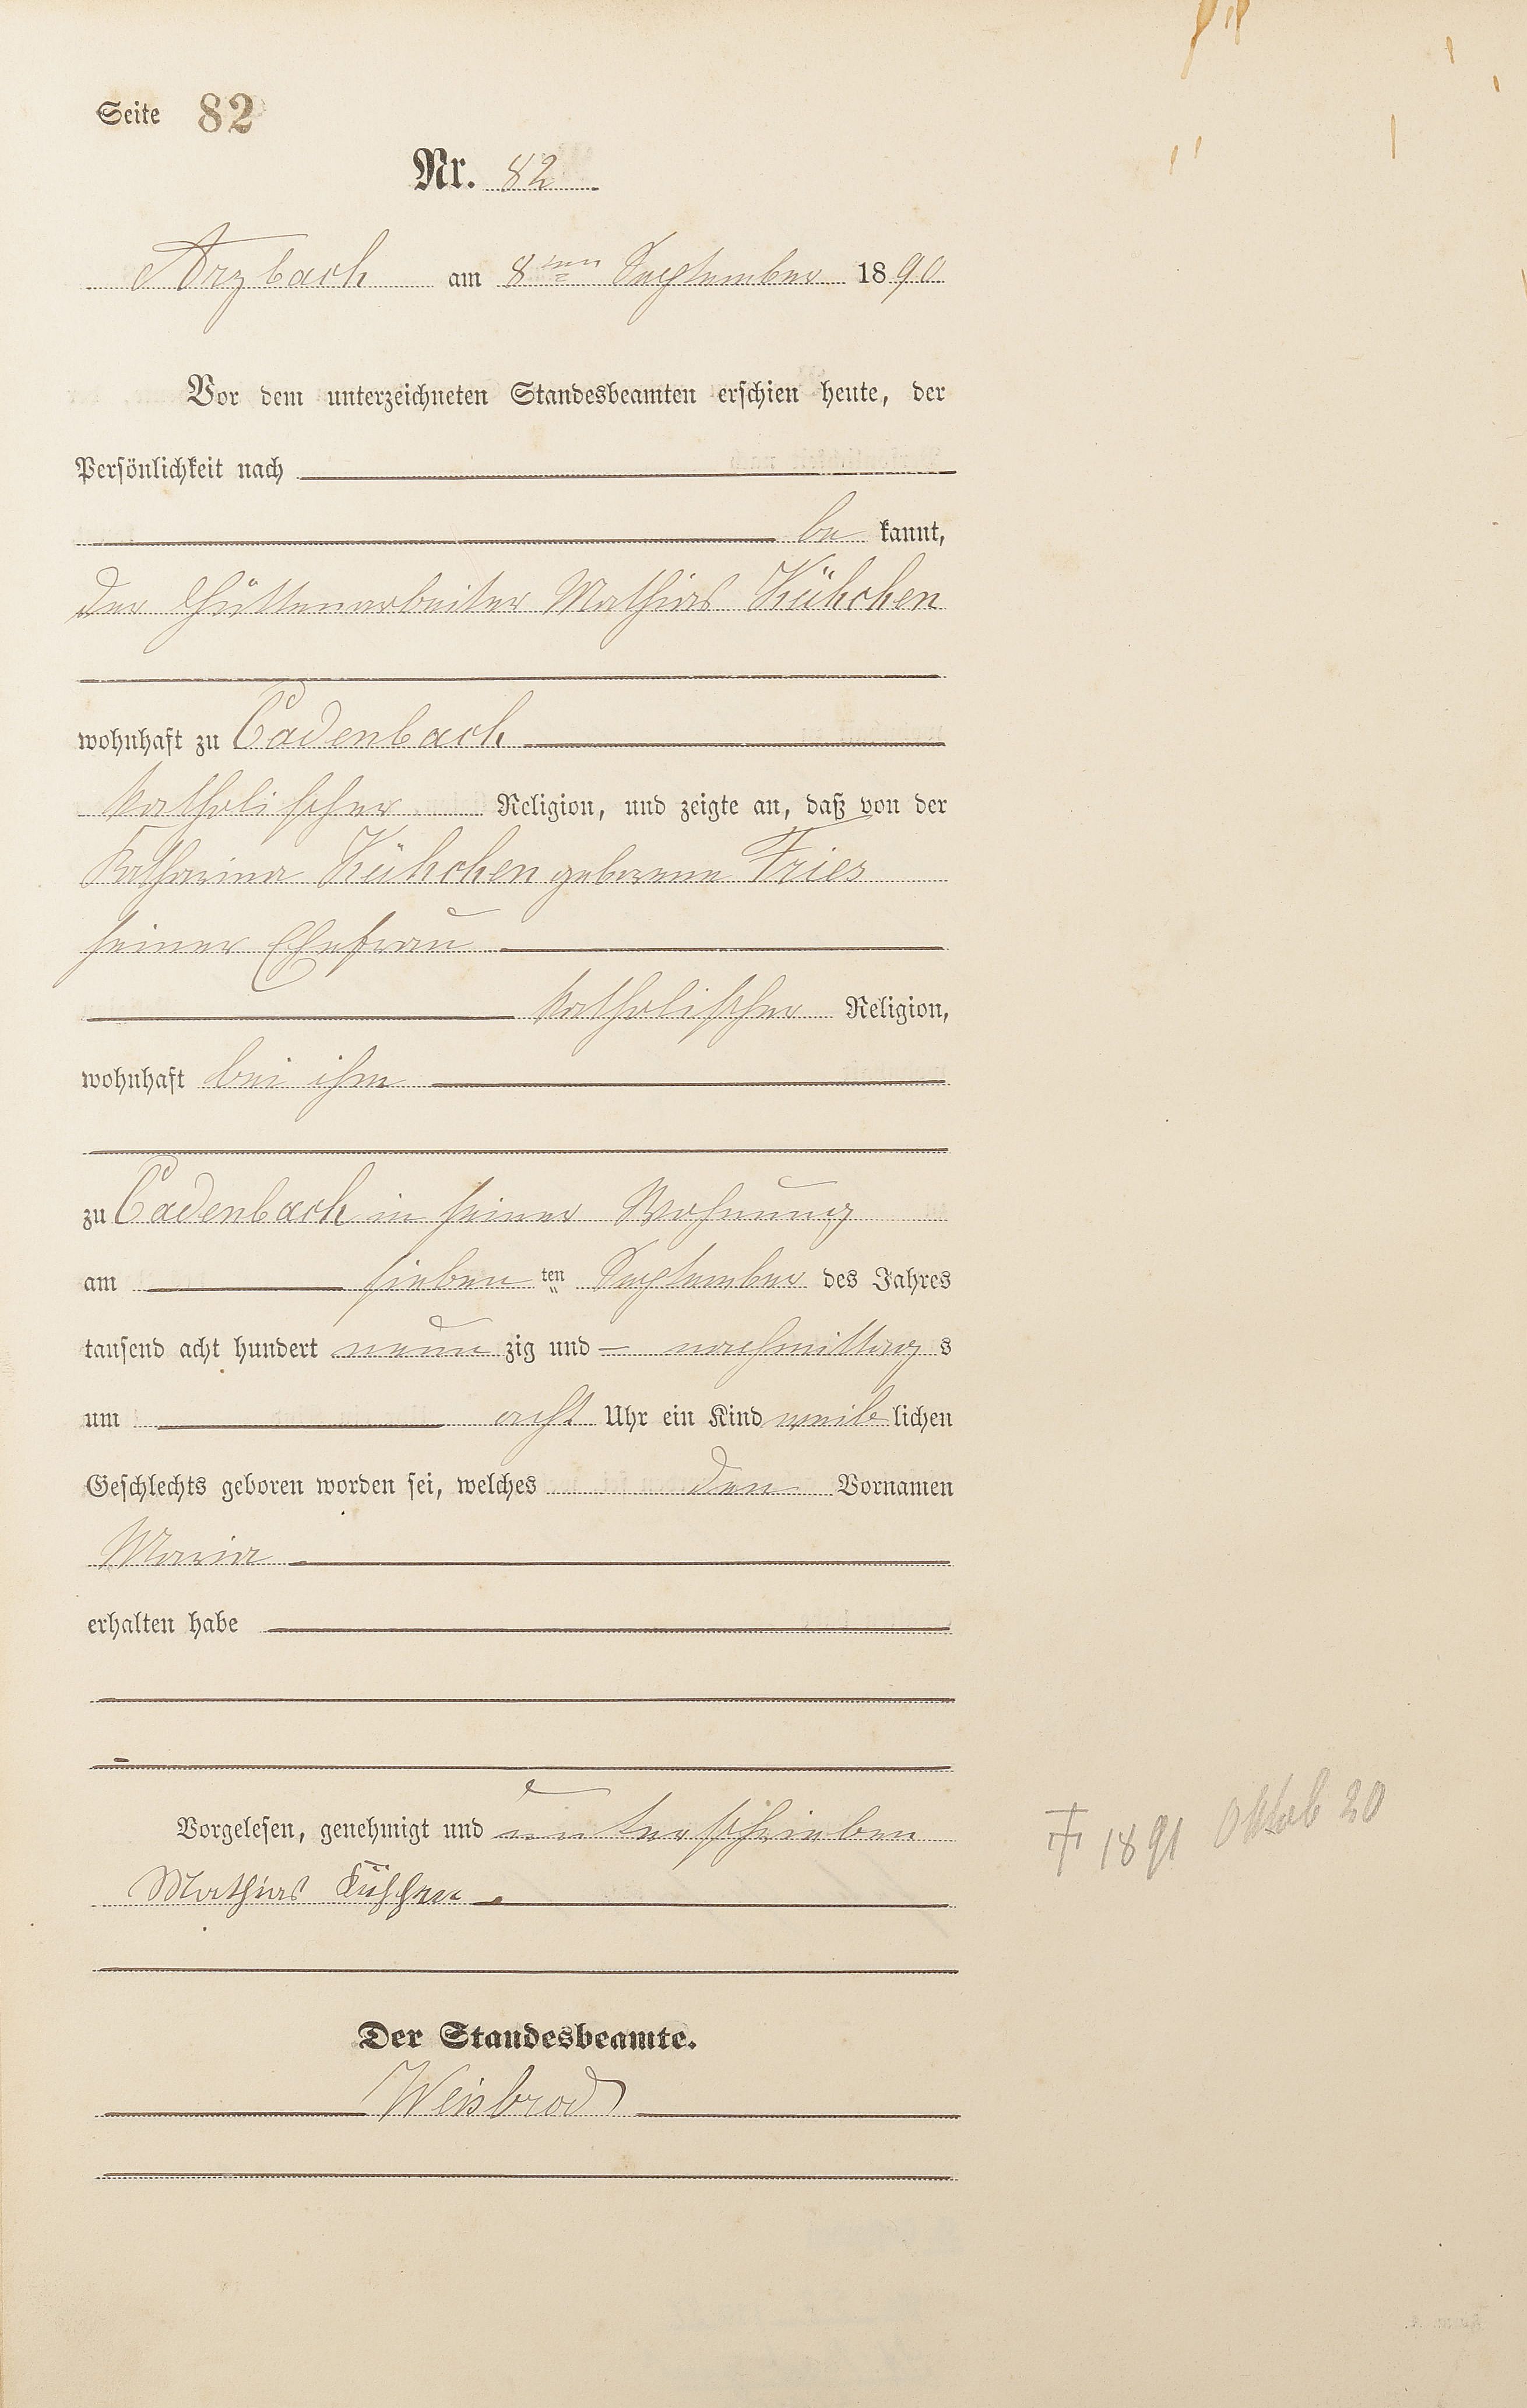 Seite 82
Nr. 82
Arzbach am 8ten September 1890
Vor dem unterzeichneten Standesbeamten erschien heute, der
Persönlichkeit nach
be kannt,
der Hüttenarbeiter Mathias Kühchen
wohnhaft zu Cadenbach
katholischer Religion, und zeigte an, daß von der
Katharina Kühchen geborene Fries
seiner Ehefrau
katholischer Religion,
wohnhaft bei ihm
zu Cadenbach in seiner Wohnung
am sieben ten September des Jahres
tausend acht hundert neun zig und – nachmittag s
um acht Uhr ein Kind weib lichen
Geschlechts geboren worden sei, welches den Vornamen
Maria
erhalten habe
Vorgelesen, genehmigt und unterschrieben
Mathias Kühchen
† 1891 Oktob 20
Der Standesbeamte.
Weisbrod